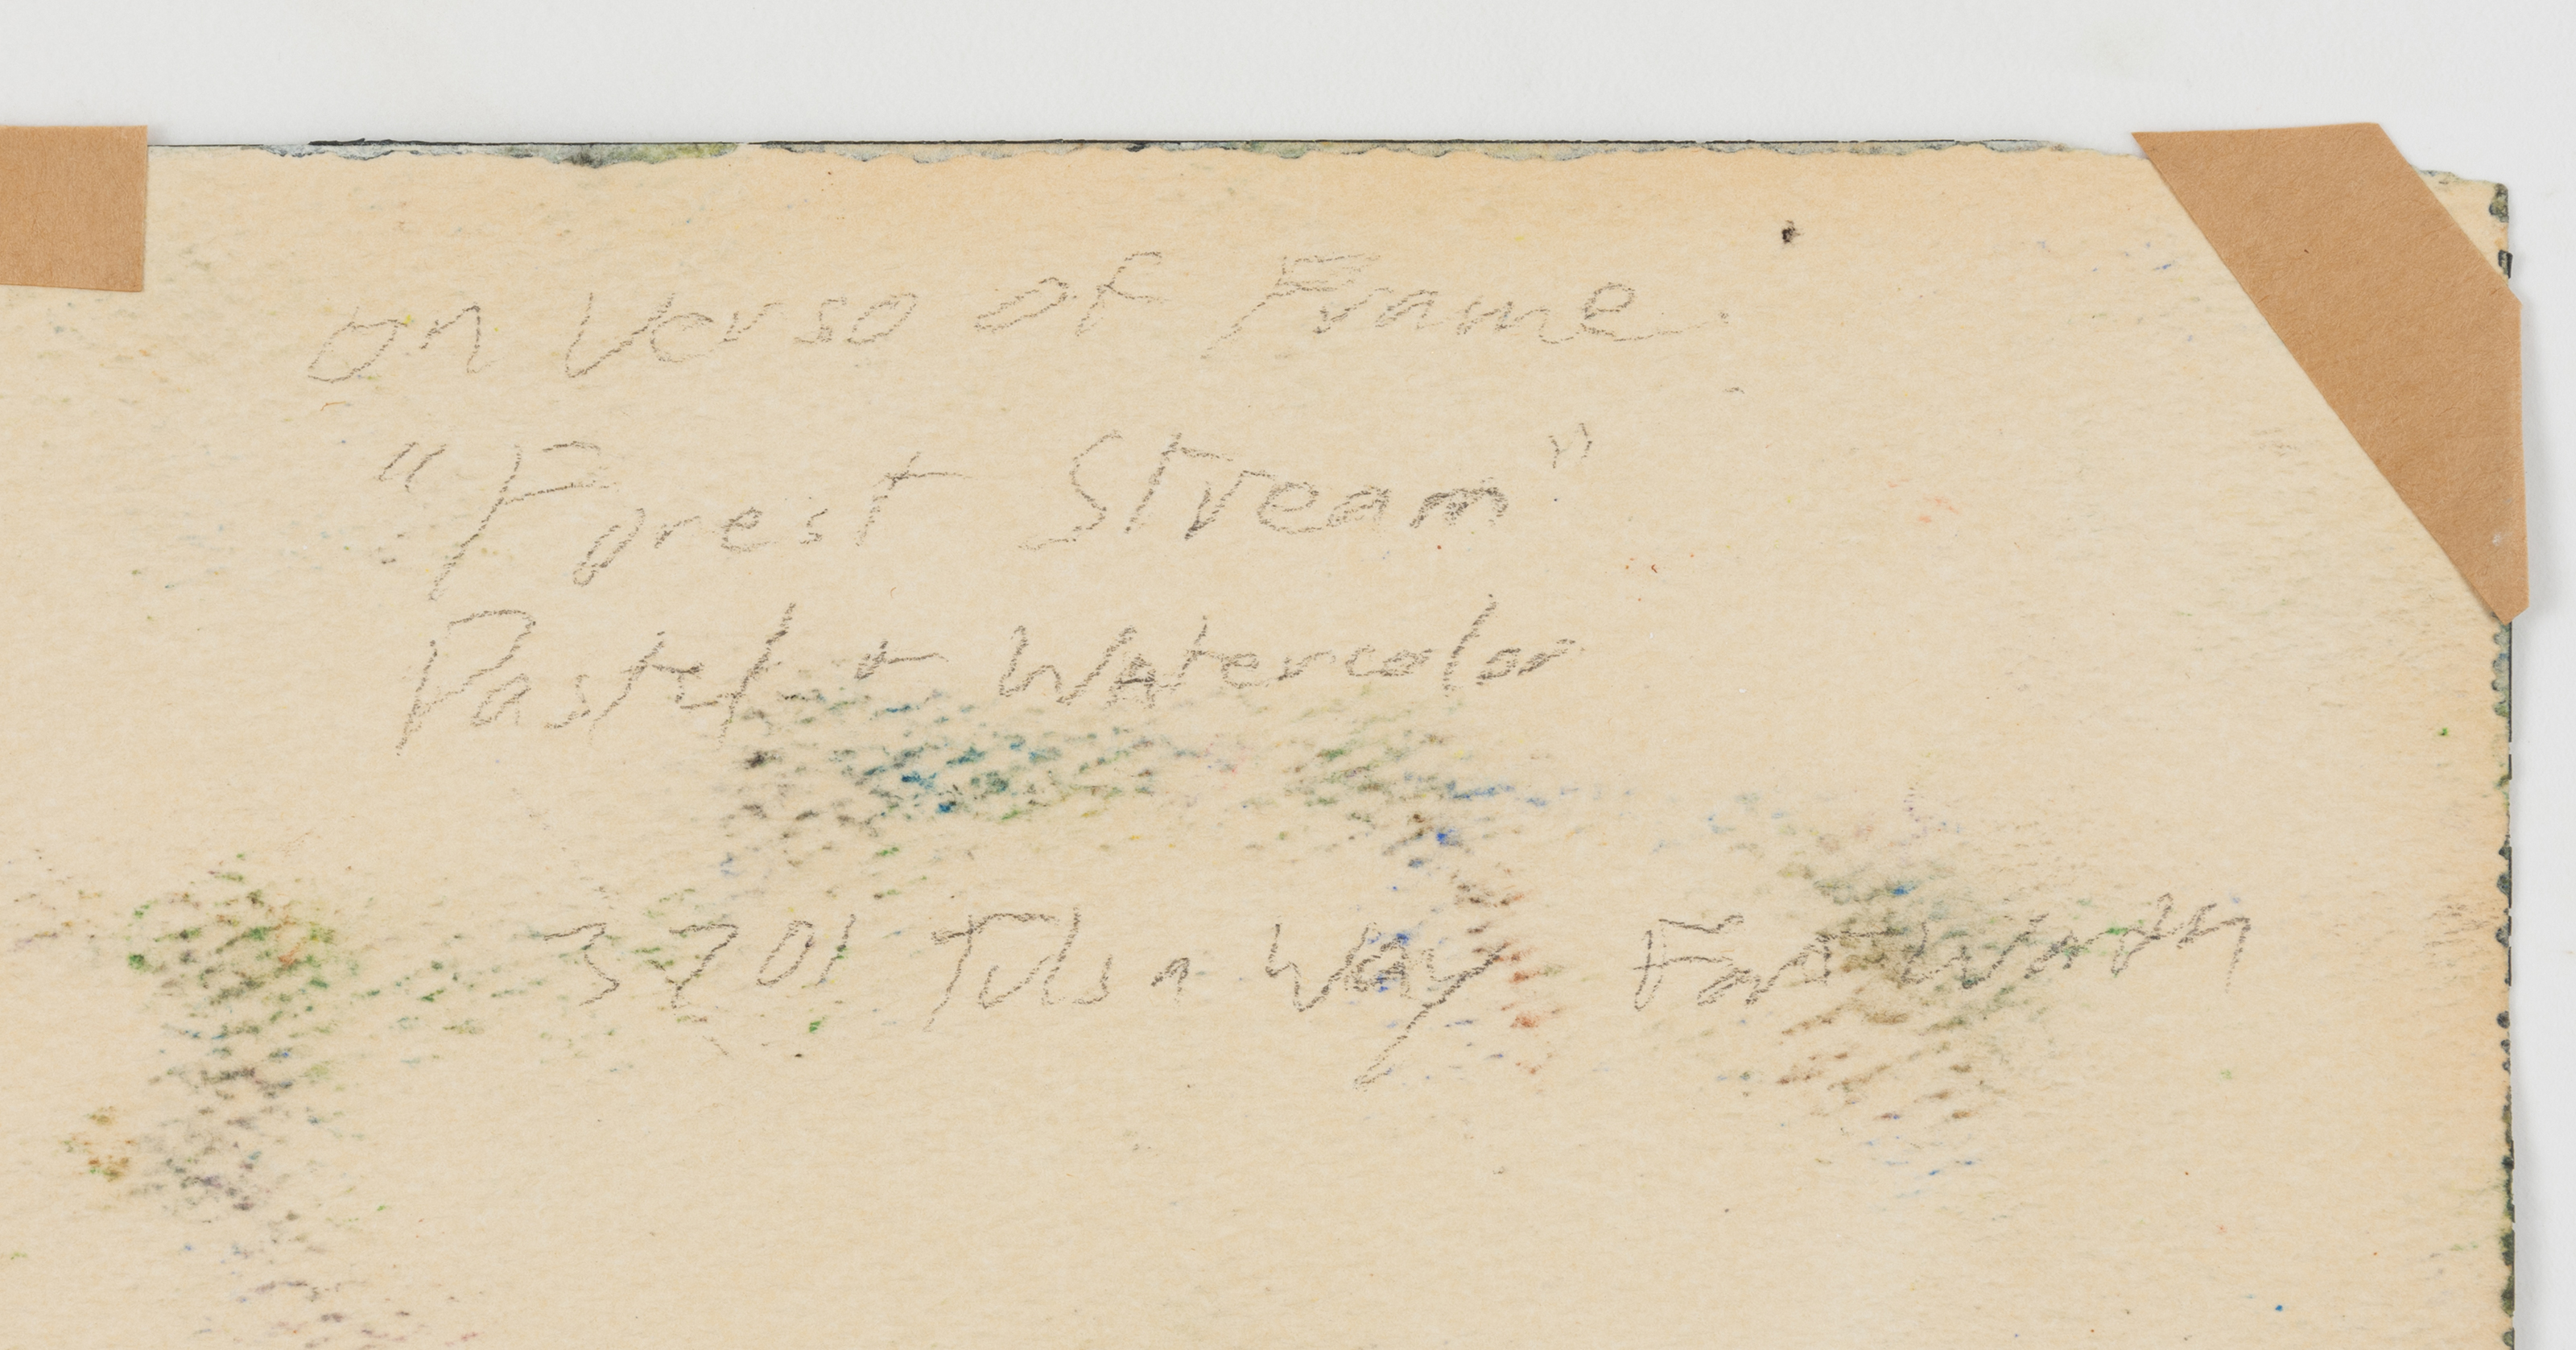 on verso of Frame.
"Forest Stream"
Pastel + Watercolor
3201 Tulsa Way Fort Worth